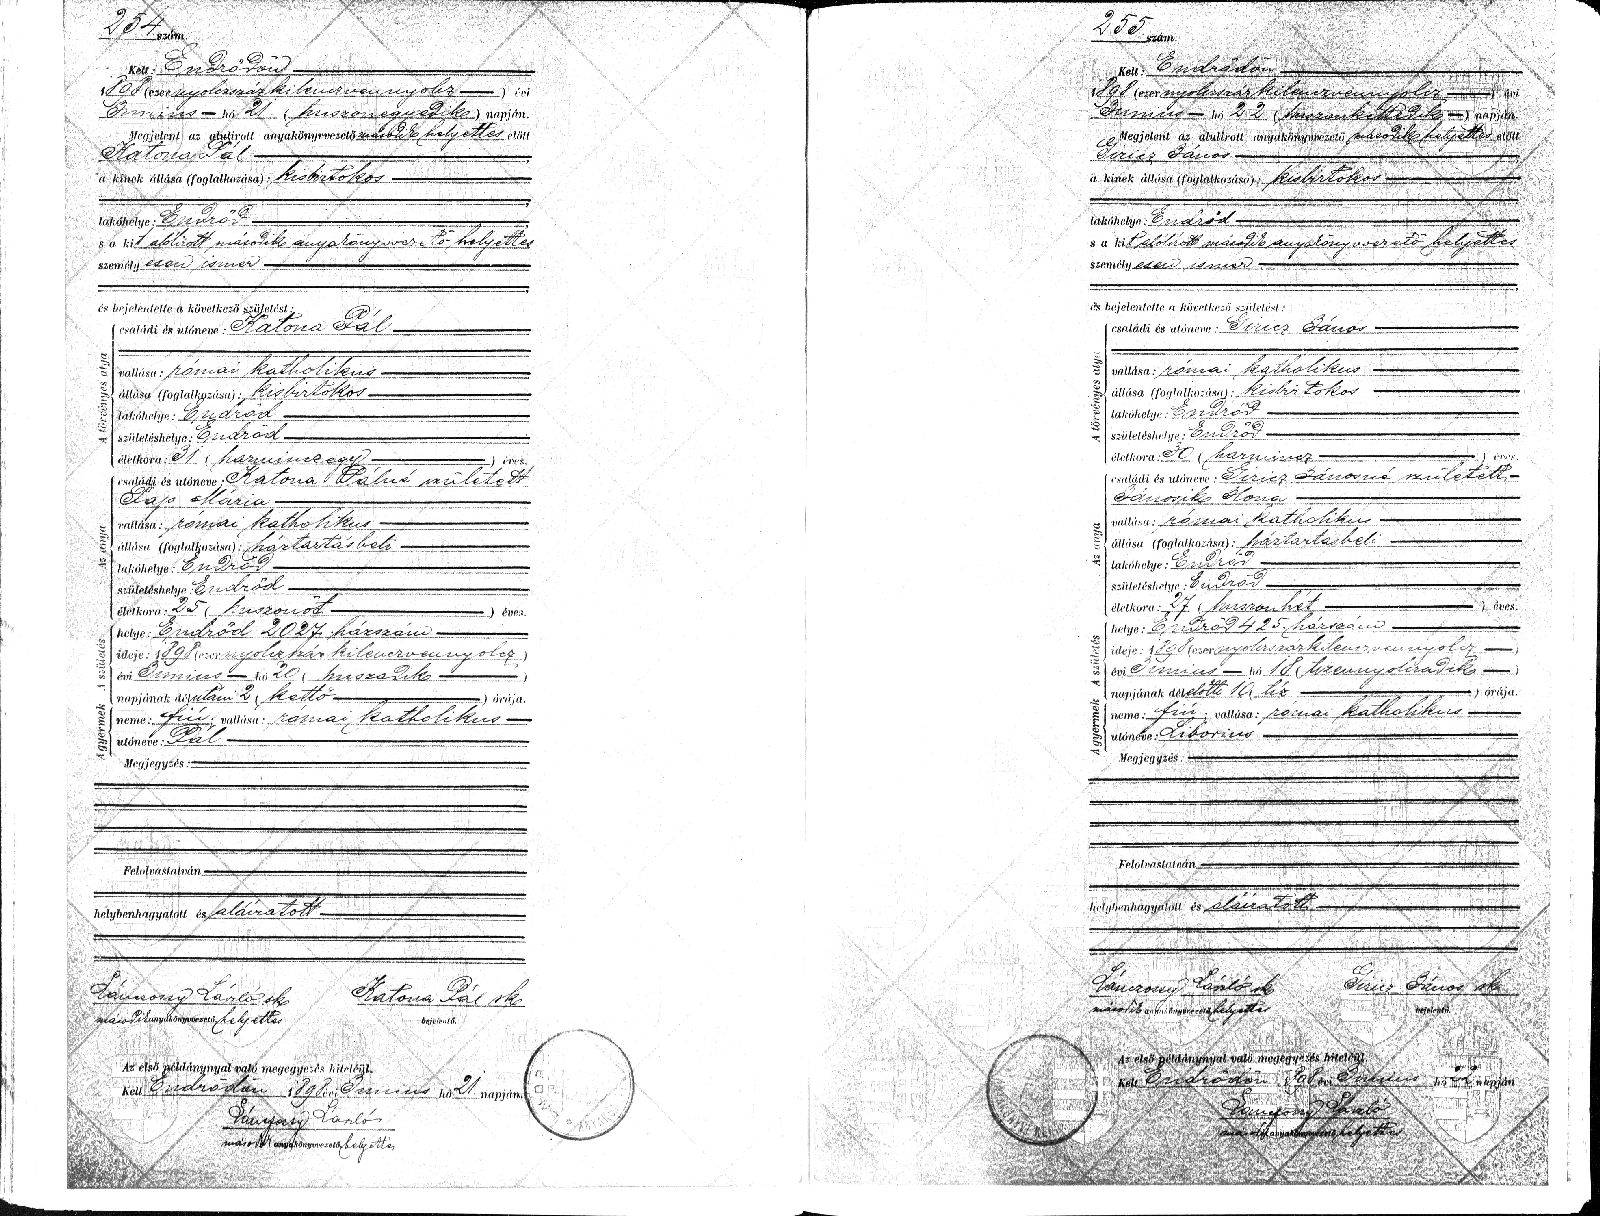 254 szám.
Kelt: Endrődön
1898 (ezernyolczszázkilenczvennyolcz) évi
Junius hó 21 (huszonegyedik) napján.
Megjelent az alulirott anyakönyvvezető második helyettes előtt
Katona Pál
a kinek állása (foglalkozása): kisbirtokos
lakóhelye: Endrőd
s a kit alólirott második anyakönyvvezető helyettes
személyesen ismer
és bejelentette a következő születést:
A törvényes atya
családi és utóneve: Katona Pál
vallása: római katholikus
állása (foglalkozása): kisbirtokos
lakóhelye: Endrőd
születéshelye: Endrőd
életkora: 31 (harminczegy) éves.
Az anya
családi és utóneve: Katona Pálné született
Pap Mária
vallása: római katholikus
állása (foglalkozása): háztartásbeli
lakóhelye: Endrőd
születéshelye: Endrőd
életkora: 25 (huszonöt) éves.
A születés
helye: Endrőd 2027 házszám
ideje: 1898 (ezernyolczszázkilenczvennyolcz)
évi Junius hó 20 (huszadik)
napjának délutáni 2 (kettő) órája.
A gyermek
neme: fiú; vallása: római katholikus
utóneve: Pál
Megjegyzés:
Felolvastatván
helybenhagyatott és aláiratott
László sk Katona Pál sk
második anyakönyvvezető helyettes bejelentő.
Az első példánynyal való megegyezés hiteléül.
Kelt Endrődön, 1898 évi Junius hó 21 napján.
László
második anyakönyvvezető helyettes
255 szám.
Kelt: Endrődön
1898 (ezernyolczszázkilenczvennyolcz) évi
Junius hó 22 (huszonkettedik) napján.
Megjelent az alulirott anyakönyvvezető második helyettes előtt
Giricz János
a kinek állása (foglalkozása): kisbirtokos
lakóhelye: Endrőd
s a kit alólirott második anyakönyvvezető helyettes
személyesen ismer
és bejelentette a következő születést:
A törvényes atya
családi és utóneve: Giricz János
vallása: római katholikus
állása (foglalkozása): kisbirtokos
lakóhelye: Endrőd
születéshelye: Endrőd
életkora: 30 (harmincz) éves.
Az anya
családi és utóneve: Giricz Jánosné született
Jánosik Ilona
vallása: római katholikus
állása (foglalkozása): háztartásbeli
lakóhelye: Endrőd
születéshelye: Endrőd
életkora: 27 (huszonhét) éves.
A születés
helye: Endrőd 425 házszám
ideje: 1898 (ezernyolczszázkilenczvennyolcz)
évi Junius hó 18 (tizennyolczadik)
napjának délelőtti 10 (tíz) órája.
A gyermek
neme: fiú; vallása: római katholikus
utóneve: Liborius
Megjegyzés:
Felolvastatván
helybenhagyatott és aláiratott
László sk Giricz János sk
második anyakönyvvezető helyettes bejelentő.
Az első példánynyal való megegyezés hiteléül.
Kelt Endrődön, 1898 évi Junius hó 22 napján
László
második anyakönyvvezető helyettes